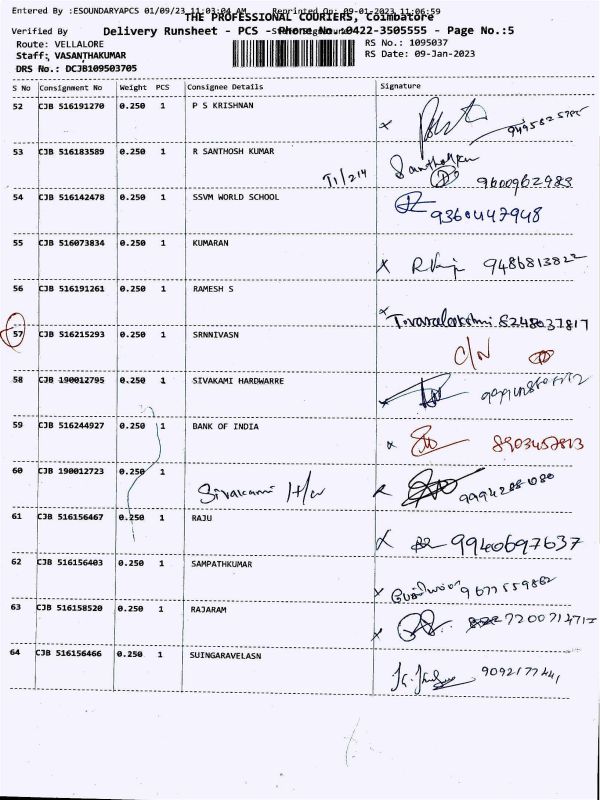 Entered By :ESOUNDARYAPCS 01/09/23 11:03:04 AM Reprinted On: 09-01-2023 11:06:59
THE PROFESSIONAL COURIERS, Coimbatore
Verified By Delivery Runsheet - PCS - Phone No.:0422-3505555 - Page No.:5
Route: VELLALORE RS No.: 1095037
Staff: VASANTHAKUMAR RS Date: 09-Jan-2023
DRS No.: DCJB109503705
S No Consignment No Weight PCS Consignee Details Signature
52 CJB 516191270 0.250 1 P S KRISHNAN
53 CJB 516183589 0.250 1 R SANTHOSH KUMAR
T1/214 9600962983
54 CJB 516142478 0.250 1 SSVM WORLD SCHOOL
9360447948
55 CJB 516073834 0.250 1 KUMARAN
x 9486813822
56 CJB 516191261 0.250 1 RAMESH S
x 8248037817
57 CJB 516215293 0.250 1 SRNNIVASN
C/N
58 CJB 190012795 0.250 1 SIVAKAMI HARDWARRE
59 CJB 516244927 0.250 1 BANK OF INDIA
8903457813
60 CJB 190012723 0.250 1
Sivakami H/w
61 CJB 516156467 0.250 1 RAJU
9940697637
62 CJB 516156403 0.250 1 SAMPATHKUMAR
x 9677559862
63 CJB 516158520 0.250 1 RAJARAM
x
64 CJB 516156466 0.250 1 SUINGARAVELASN
9092177441